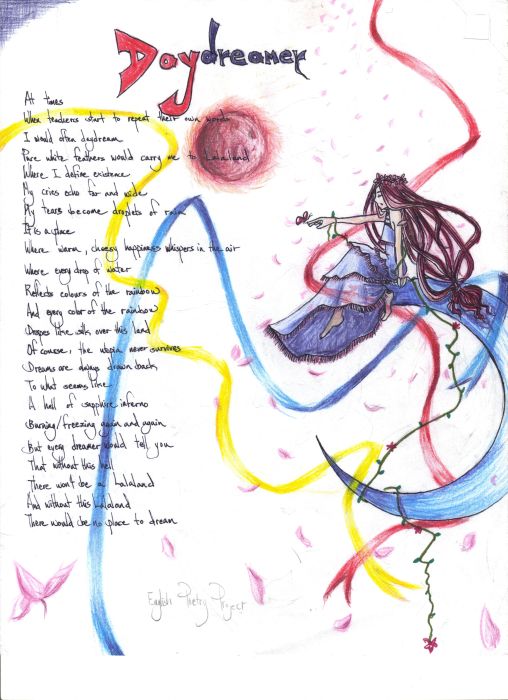 Daydreamer
At times
When teachers start to repeat their own words
I would often daydream
Pure white feathers would carry me to Lalaland
Where I define existence
My cries echo far and wide
My tears become droplets of rain
It is a place
Where warm, cheesy happiness whispers in the air
Where every drop of water
Reflects colours of the rainbow
And every color of the rainbow
Drapes like silk over this land
Of course, the utopia never survives
Dreams are always drawn back
To what seems like
A hell of sapphire inferno
Burning/freezing again and again
But every dreamer would tell you
That without this hell
There won't be a Lalaland
And without this Lalaland
There would be no place to dream
English Poetry Project